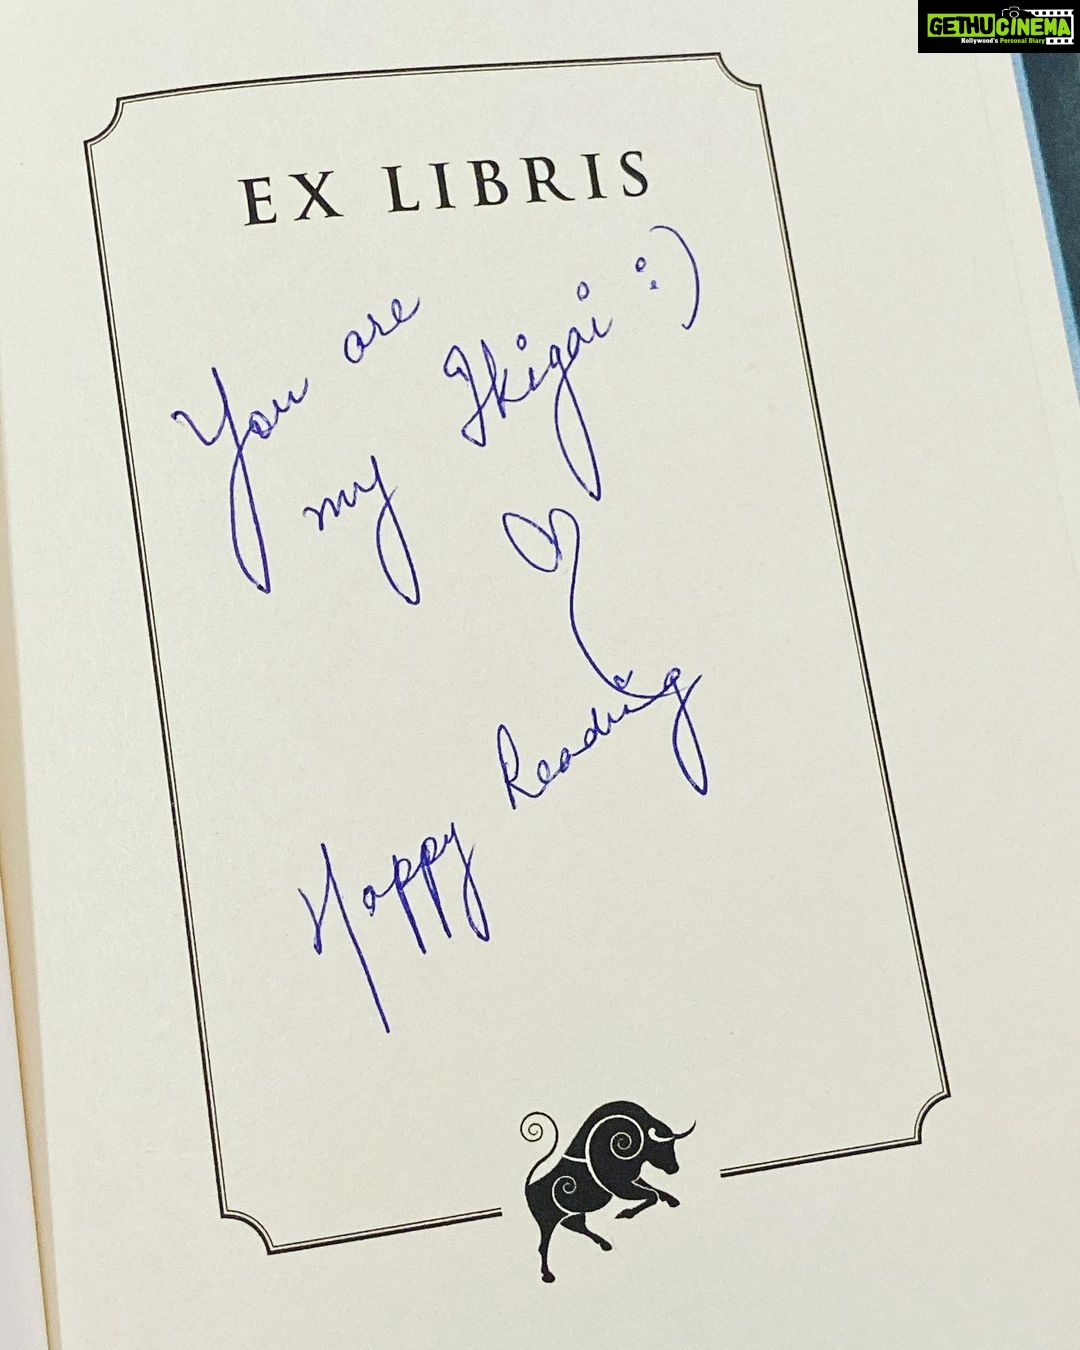 GETHUCINEMA
Kollywood's Personal Diary
EX LIBRIS
You are
my Ikigai :)
Happy Reading